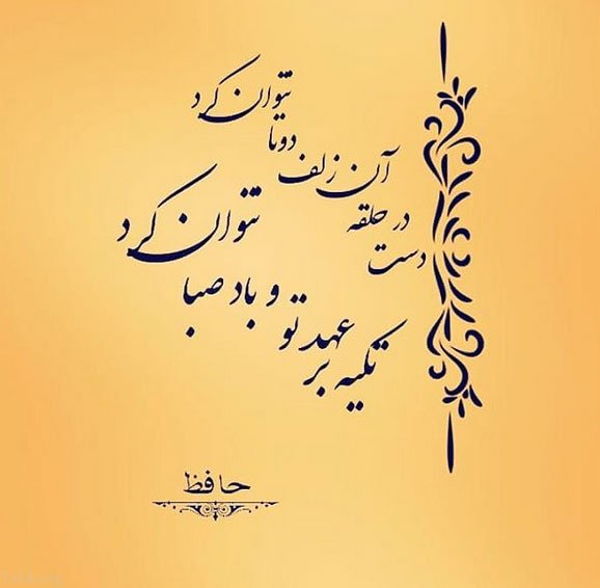 دست در حلقه آن زلف دوتا نتوان کرد
تکیه بر عهد تو و باد صبا نتوان کرد
حافظ